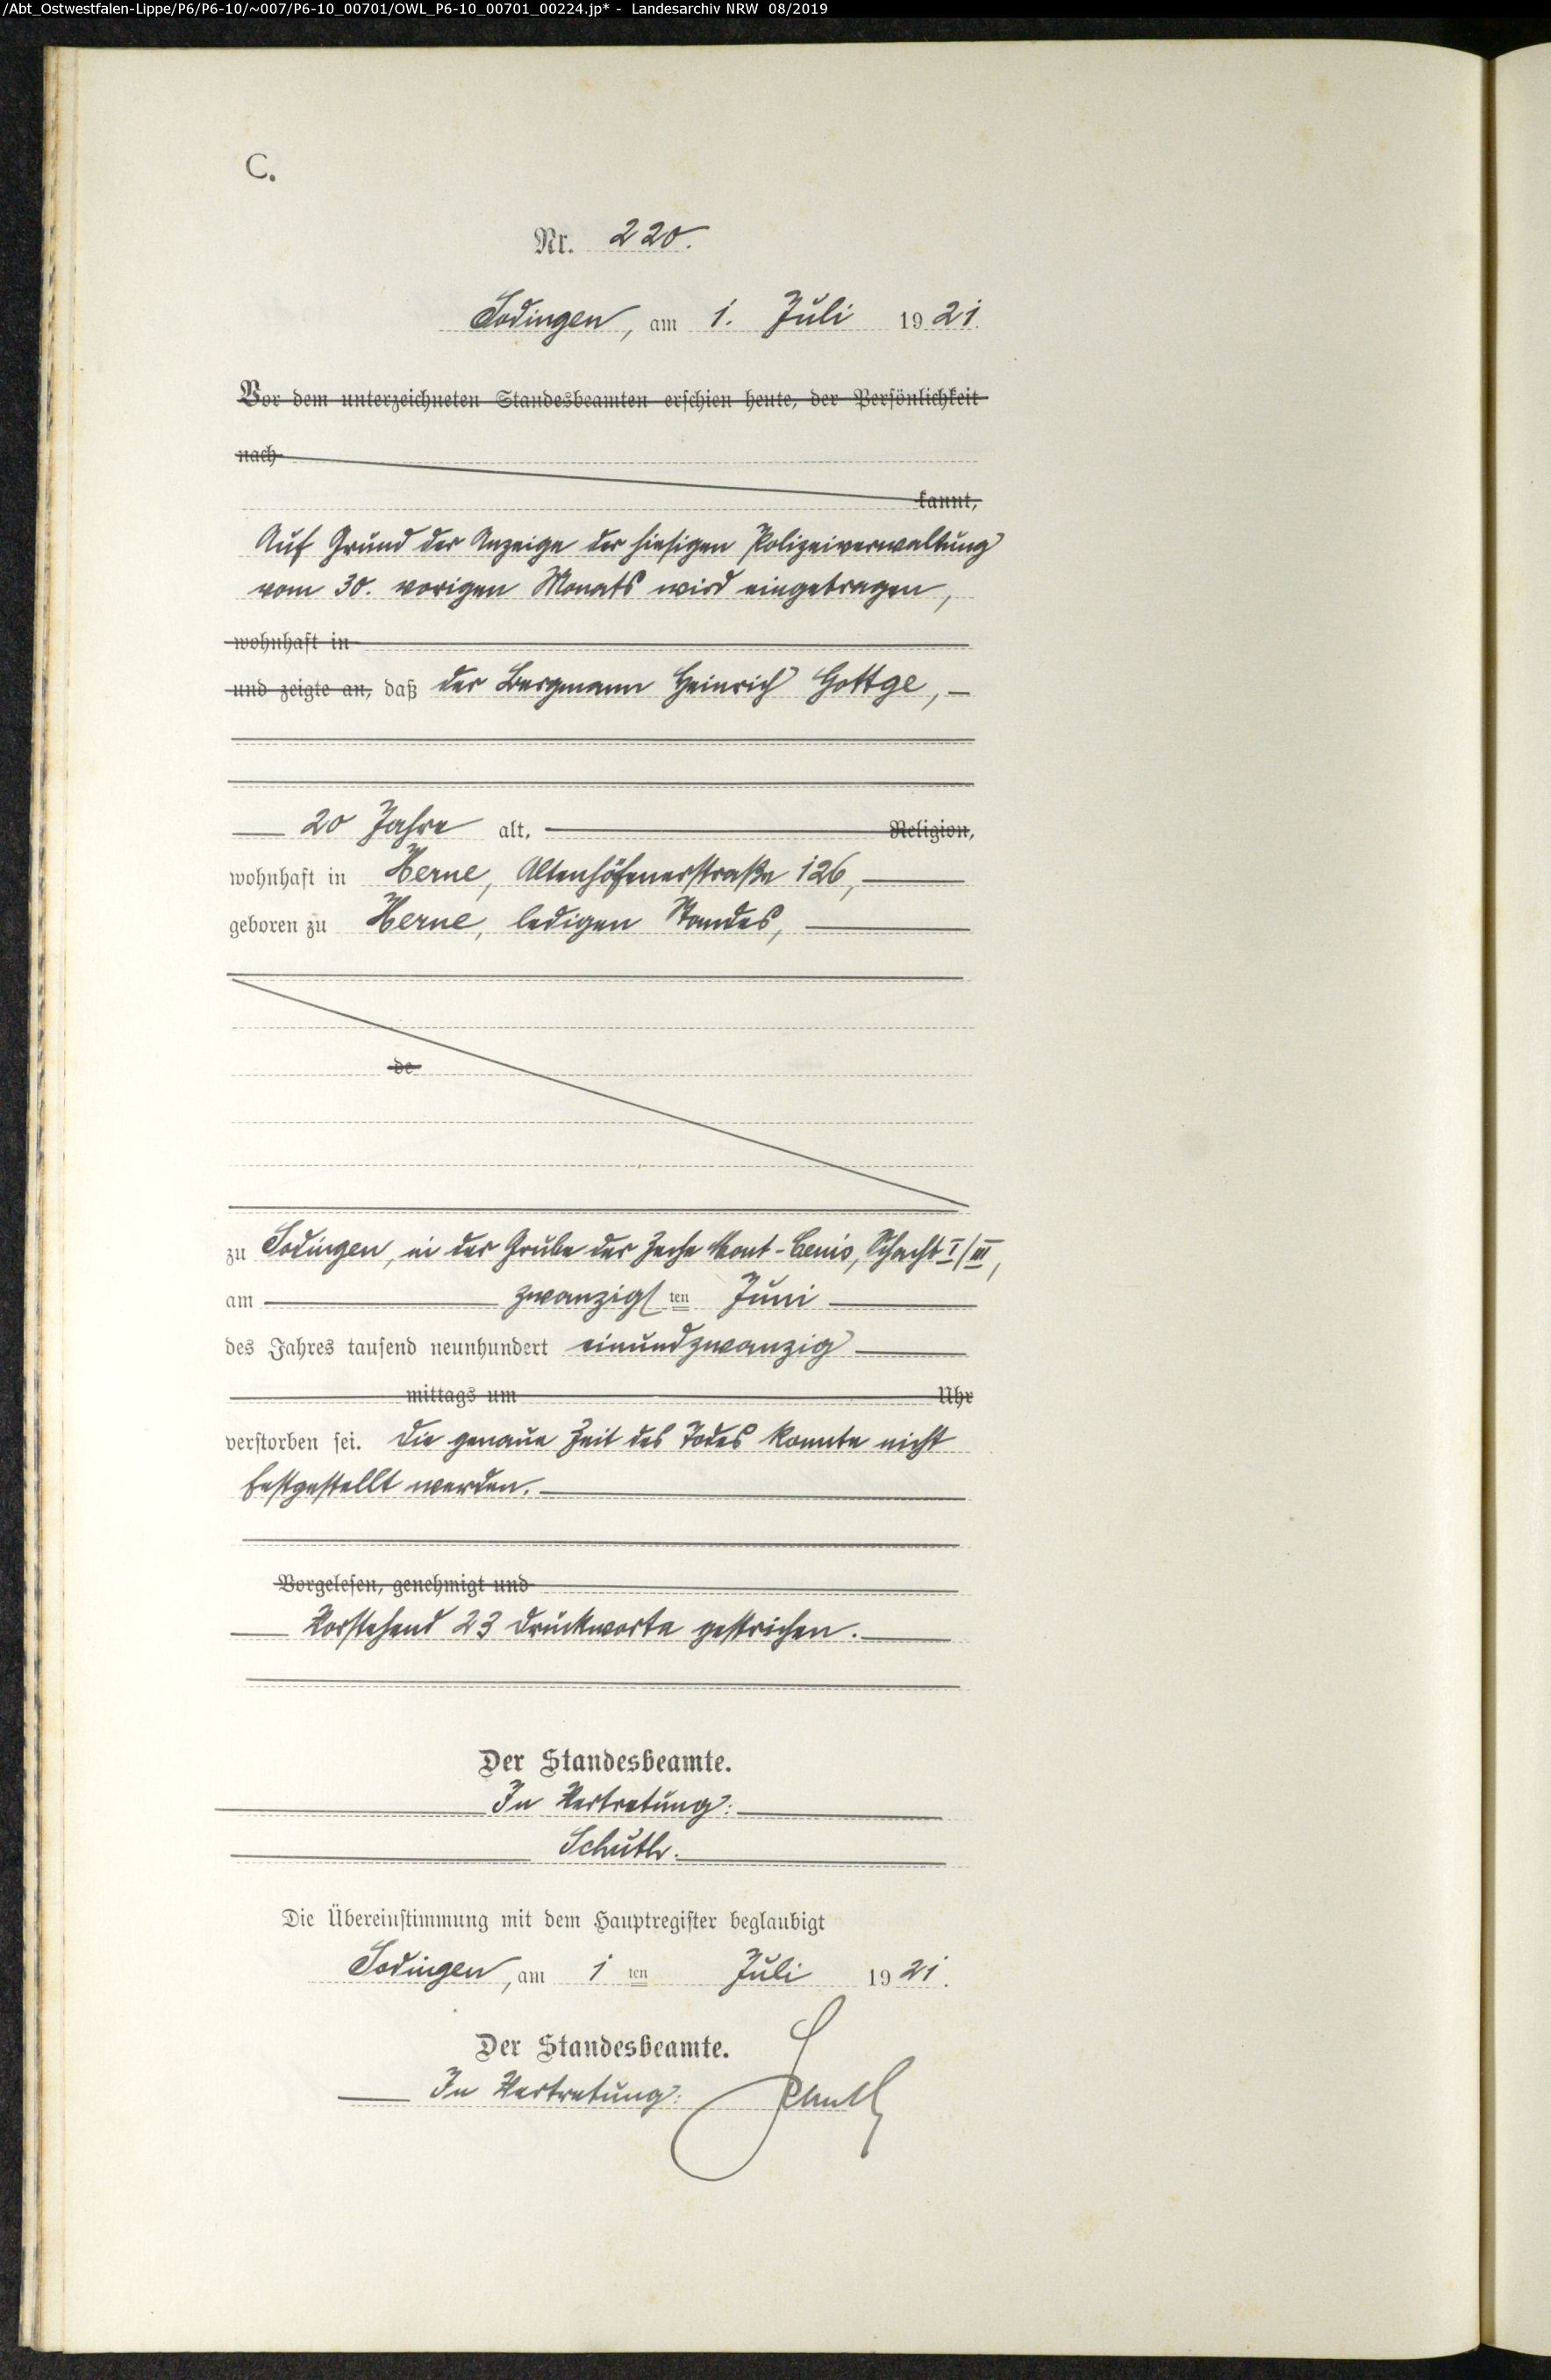 /Abt_Ostwestfalen-Lippe/P6/P6-10/~007/P6-10_00701/OWL_P6-10_00701_00224.jp* - Landesarchiv NRW 08/2019
C.
Nr. 220.
Sodingen, am 1. Juli 1921.
Vor dem unterzeichneten Standesbeamten erschien heute, der Persönlichkeit
nach
kannt,
Auf Grund der Anzeige der hiesigen Polizeiverwaltung
vom 30. vorigen Monats wird eingetragen,
wohnhaft in
und zeigte an, daß der Bergmann Heinrich Gottge,
20 Jahre alt, Religion,
wohnhaft in Herne, Altenhöfenerstraße 126,
geboren zu Herne, ledigen Standes,
de
zu Sodingen, in der Grube der Zeche Mont-Cenis, Schacht I/III,
am zwanzigsten Juni
des Jahres tausend neunhundert einundzwanzig
mittags um Uhr
verstorben sei. Die genaue Zeit des Todes konnte nicht
festgestellt werden.
Vorgelesen, genehmigt und
Vorstehend 23 Druckworte gestrichen.
Der Standesbeamte.
In Vertretung:
Die Übereinstimmung mit dem Hauptregister beglaubigt
Sodingen, am 1 ten Juli 1921.
Der Standesbeamte.
In Vertretung: